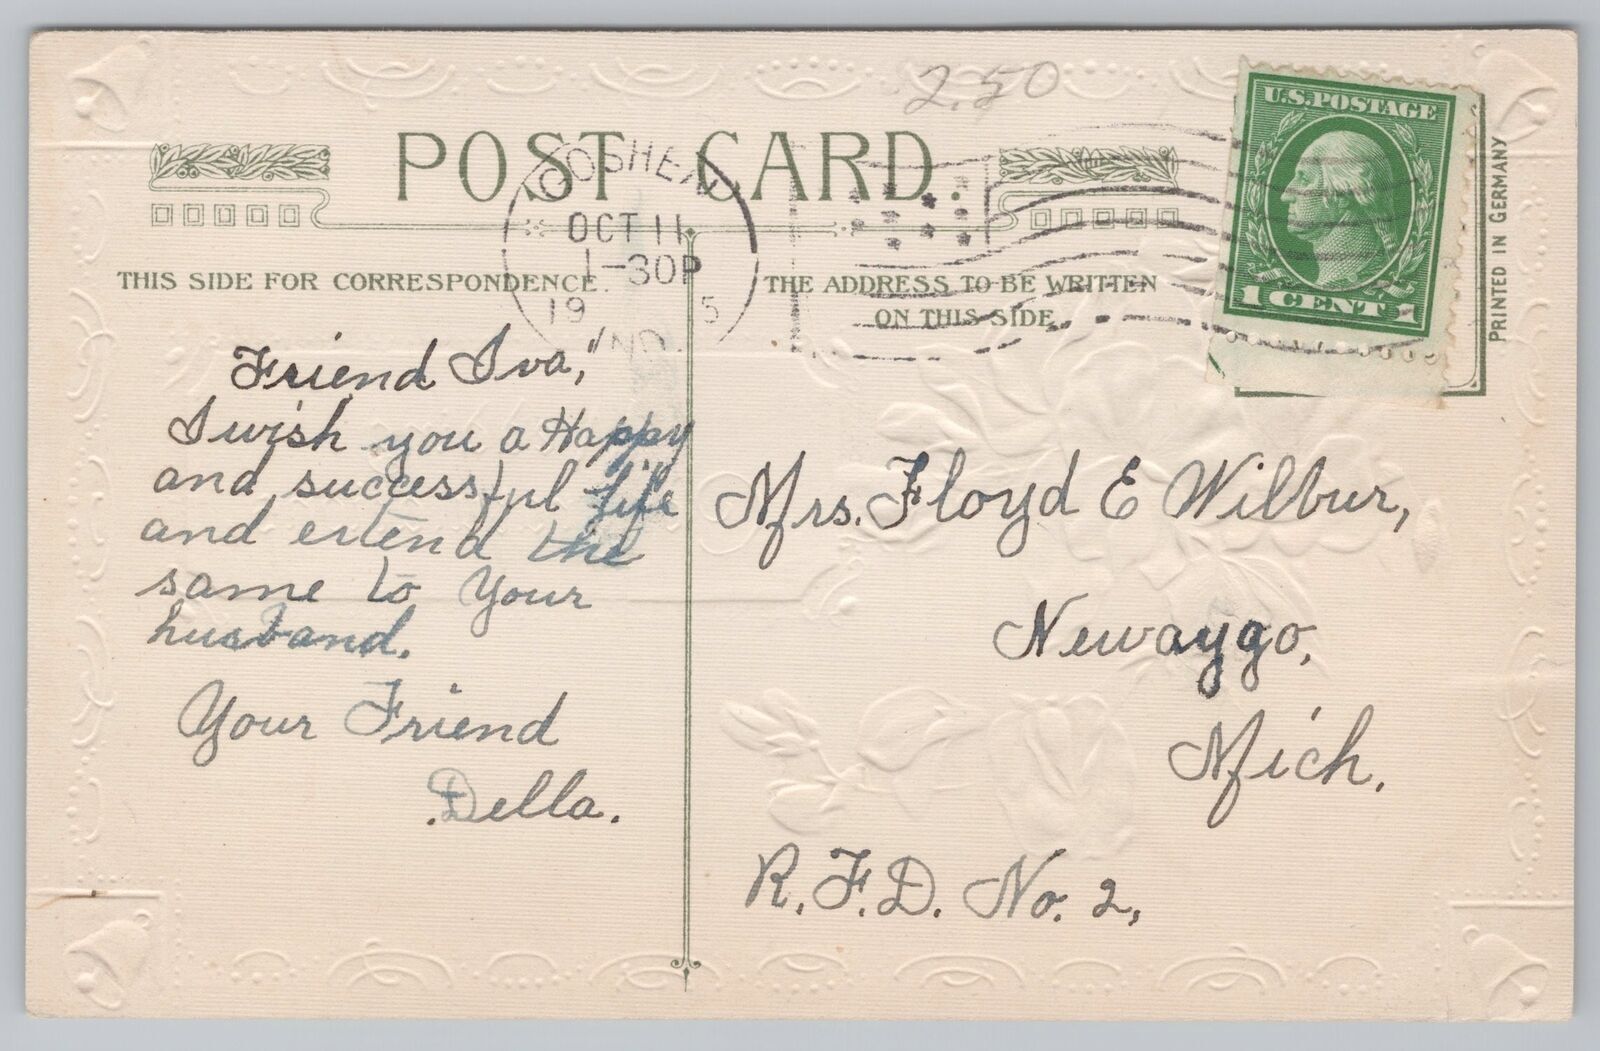 2.50
U.S. POSTAGE
1 CENT 1
POST CARD.
GOSHEN
OCT 11
1-30P
19 5
IND.
PRINTED IN GERMANY
THIS SIDE FOR CORRESPONDENCE.
THE ADDRESS TO BE WRITTEN
ON THIS SIDE.
Friend Iva,"
I wish you a Happy
and successful life
and extend the
same to Your
husband.
Your Friend
Della.
Mrs. Floyd E Wilbur,
Newaygo,
Mich.
R.F.D. No. 2,